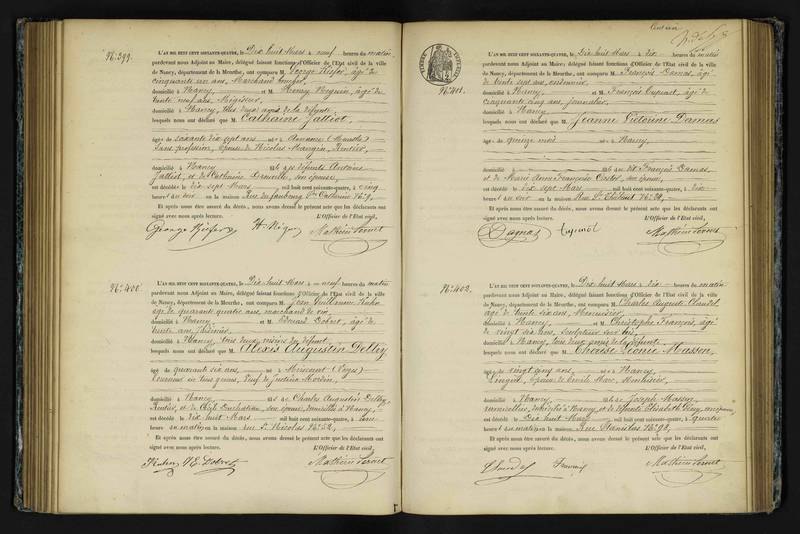 No. 399.
L'AN MIL HUIT CENT SOIXANTE-QUATRE, le Dix huit Mars à neuf heures du matin
pardevant nous Adjoint au Maire, délégué faisant fonctions d'Officier de l'Etat civil de la ville
de Nancy, département de la Meurthe, ont comparu M. George Kiefer, âgé de
cinquante un ans, Marchand
domicilié à Nancy, et M. Henry Noguin, âgé de
trente neuf ans, Régisseur,
domicilié à Nancy, tous deux amis de la défunte,
lesquels nous ont déclaré que M Catherine Jalliot,
âgée de soixante dix sept ans née à Amance (Meurthe)
sans profession, épouse de Nicolas Mangin, Rentier,
domiciliée à Nancy fille des défunts Antoine
Jalliot, et de Catherine son épouse,
est décédée le dix sept Mars mil huit cent soixante-quatre, à cinq
heures du soir en la maison Rue du faubourg Ste Catherine No. 9,
Et après nous être assuré du décès, nous avons dressé le présent acte que les déclarants ont
signé avec nous après lecture. L'Officier de l'Etat civil,
No. 400.
L'AN MIL HUIT CENT SOIXANTE-QUATRE, le Dix huit Mars à neuf heures du matin
pardevant nous Adjoint au Maire, délégué faisant fonctions d'Officier de l'Etat civil de la ville
de Nancy, département de la Meurthe, ont comparu M. Jean Guillaume Kuhn
âgé de quarante quatre ans, marchand de vin,
domicilié à Nancy, et M. Edouard Dobret, âgé de
trente ans,
domicilié à Nancy, tous deux voisins du défunt,
lesquels nous ont déclaré que M Alexis Augustin Delby
âgé de quarante six ans né à Mirecourt (Vosges)
Tourneur en tous genres, Veuf de Justine Mordin,
domicilié à Nancy fils de Charles Augustin Delby,
Rentier, et de son épouse, domiciliés à Nancy,
est décédé le dix huit Mars mil huit cent soixante-quatre, à une
heure du matin en la maison rue St Nicolas No. 52,
Et après nous être assuré du décès, nous avons dressé le présent acte que les déclarants ont
signé avec nous après lecture. L'Officier de l'Etat civil,
Kuhn E. Dobret
No. 401.
L'AN MIL HUIT CENT SOIXANTE-QUATRE, le Dix huit Mars à dix heures du matin
pardevant nous Adjoint au Maire, délégué faisant fonctions d'Officier de l'Etat civil de la ville
de Nancy, département de la Meurthe, ont comparu M. François Damas, âgé
de trente sept ans, cordonnier,
domicilié à Nancy, et M. François
cinquante cinq ans, journalier,
domicilié à Nancy,
lesquels nous ont déclaré que M Jeanne Victorine Damas
âgée de quinze mois née à Nancy,
domiciliée à fille du dit François Damas,
et de Marie Anne Françoise son épouse,
est décédée le dix sept Mars mil huit cent soixante-quatre, à dix
heures du soir en la maison Rue St Thiébaut No. 24,
Et après nous être assuré du décès, nous avons dressé le présent acte que les déclarants ont
signé avec nous après lecture. L'Officier de l'Etat civil,
Damas
No. 402.
L'AN MIL HUIT CENT SOIXANTE-QUATRE, le Dix huit Mars à dix heures du matin
pardevant nous Adjoint au Maire, délégué faisant fonctions d'Officier de l'Etat civil de la ville
de Nancy, département de la Meurthe, ont comparu M. Charles Auguste Claudel
âgé de trente six ans, Menuisier,
domicilié à Nancy, et M. Christophe François, âgé
de vingt six ans, sculpteur sur bois,
domicilié à Nancy, tous deux amis de la défunte,
lesquels nous ont déclaré que M Thérèse Léonie Masson,
âgée de vingt cinq ans, née à Nancy,
Lingère, épouse de Emile Marc, Menuisier,
domiciliée à Nancy, fille de Joseph Masson,
domicilié à Nancy et de défunte Elisabeth
est décédée le Dix huit Mars mil huit cent soixante-quatre, à quatre
heures du matin en la maison Rue Stanislas No. 98,
Et après nous être assuré du décès, nous avons dressé le présent acte que les déclarants ont
signé avec nous après lecture. L'Officier de l'Etat civil,
Claudel François